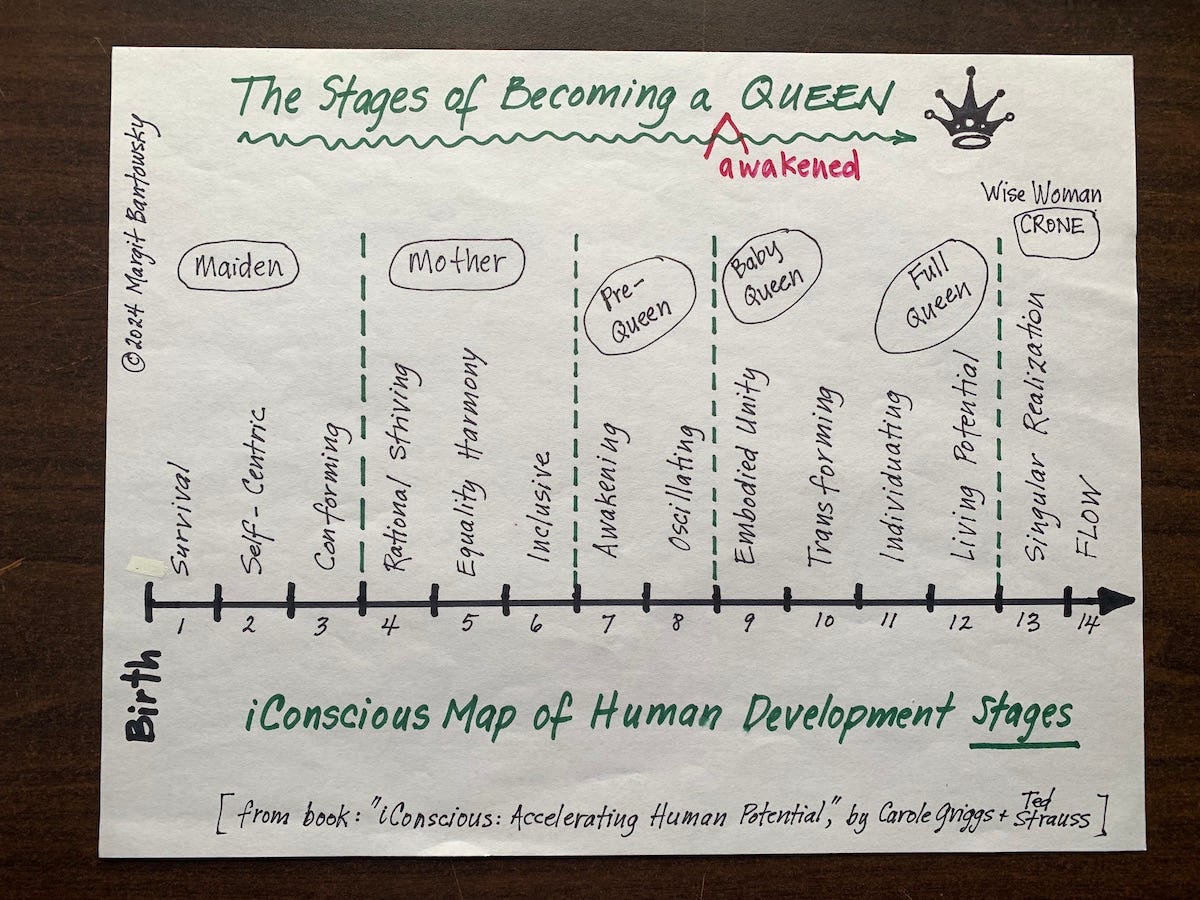 The Stages of Becoming a QUEEN
awakened
©2024 Margit Bantowsky
Wise Woman
CRONE
Maiden
Mother
Pre-
Queen
Baby
Queen
Full
Queen
Survival
Self-Centric
Conforming
Rational Striving
Equality Harmony
Inclusive
Awakening
Oscillating
Embodied Unity
Transforming
Individuating
Living Potential
Singular Realization
FLOW
1 2 3 4 5 6 7 8 9 10 11 12 13 14
Birth
iConscious Map of Human Development Stages
[from book: "iConscious: Accelerating Human Potential," by Carole Griggs + Ted Strauss]